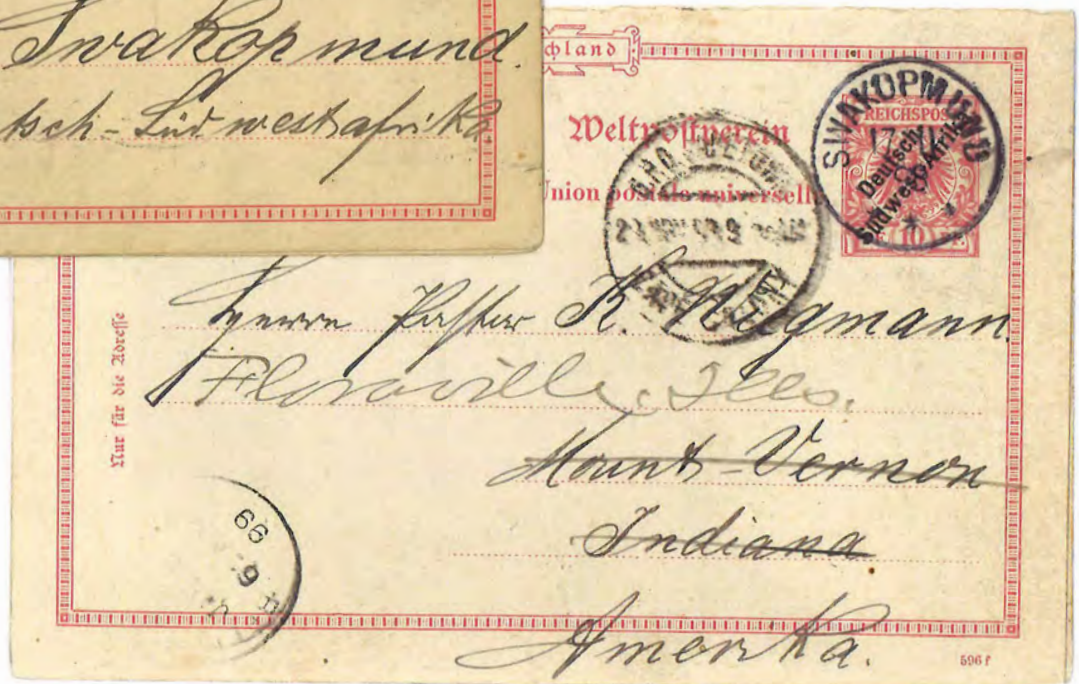 Swakopmund.
tsch-Südwestafrika
chland
Weltpostverein
Union postale universelle
SWAKOPMUND
REICHSPOST
17
Deutsch-
Südwest-Afrika
10
Nur für die Adresse
Herrn Pastor K.
Floraville. Ills.
Mount-Vernon
Indiana
Amerika.
99
6
596 f